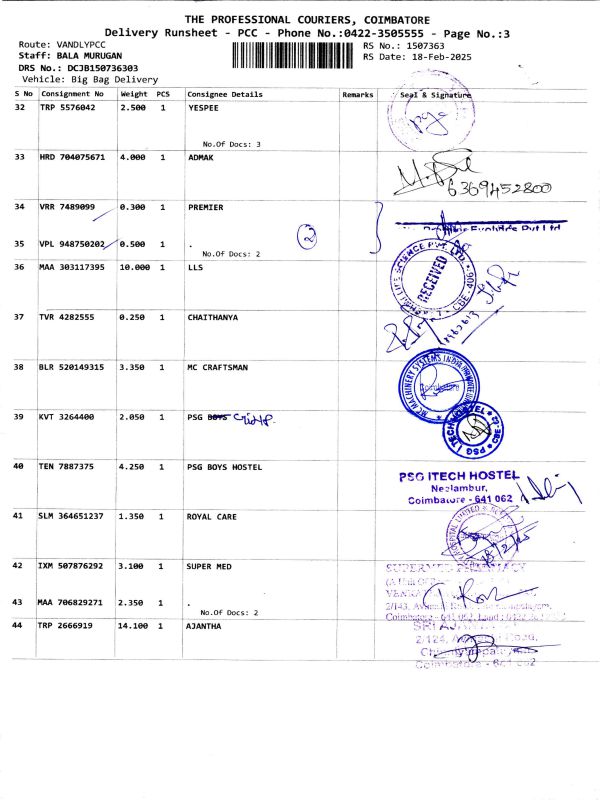 THE PROFESSIONAL COURIERS, COIMBATORE
Delivery Runsheet - PCC - Phone No.:0422-3505555 - Page No.:3
Route: VANDLYPCC
RS No.: 1507363
Staff: BALA MURUGAN
RS Date: 18-Feb-2025
DRS No.: DCJB150736303
Vehicle: Big Bag Delivery
S No Consignment No Weight PCS Consignee Details Remarks Seal & Signature
32 TRP 5576042 2.500 1 YESPEE
No.Of Docs: 3
33 HRD 704075671 4.000 1 ADMAK
6369452800
34 VRR 7489099 0.300 1 PREMIER
2
35 VPL 948750202 0.500 1 .
No.Of Docs: 2
36 MAA 303117395 10.000 1 LLS
RECEIVED
37 TVR 4282555 0.250 1 CHAITHANYA
38 BLR 520149315 3.350 1 MC CRAFTSMAN
MC MACHINERY SYSTEMS INDIA PRIVATE LIMITED
Coimbatore
39 KVT 3264400 2.050 1 PSG BOYS
PSG ITECH HOSTEL
40 TEN 7887375 4.250 1 PSG BOYS HOSTEL
PSG ITECH HOSTEL
Neelambur,
Coimbatore - 641 062
41 SLM 364651237 1.350 1 ROYAL CARE
HOSPITAL LIMITED
42 IXM 507876292 3.100 1 SUPER MED
SUPERMED PHARMACY
43 MAA 706829271 2.350 1 .
No.Of Docs: 2
2/143,
Coimbatore - 641 062,
44 TRP 2666919 14.100 1 AJANTHA
SRI
2/124,
Coimbatore - 641 062